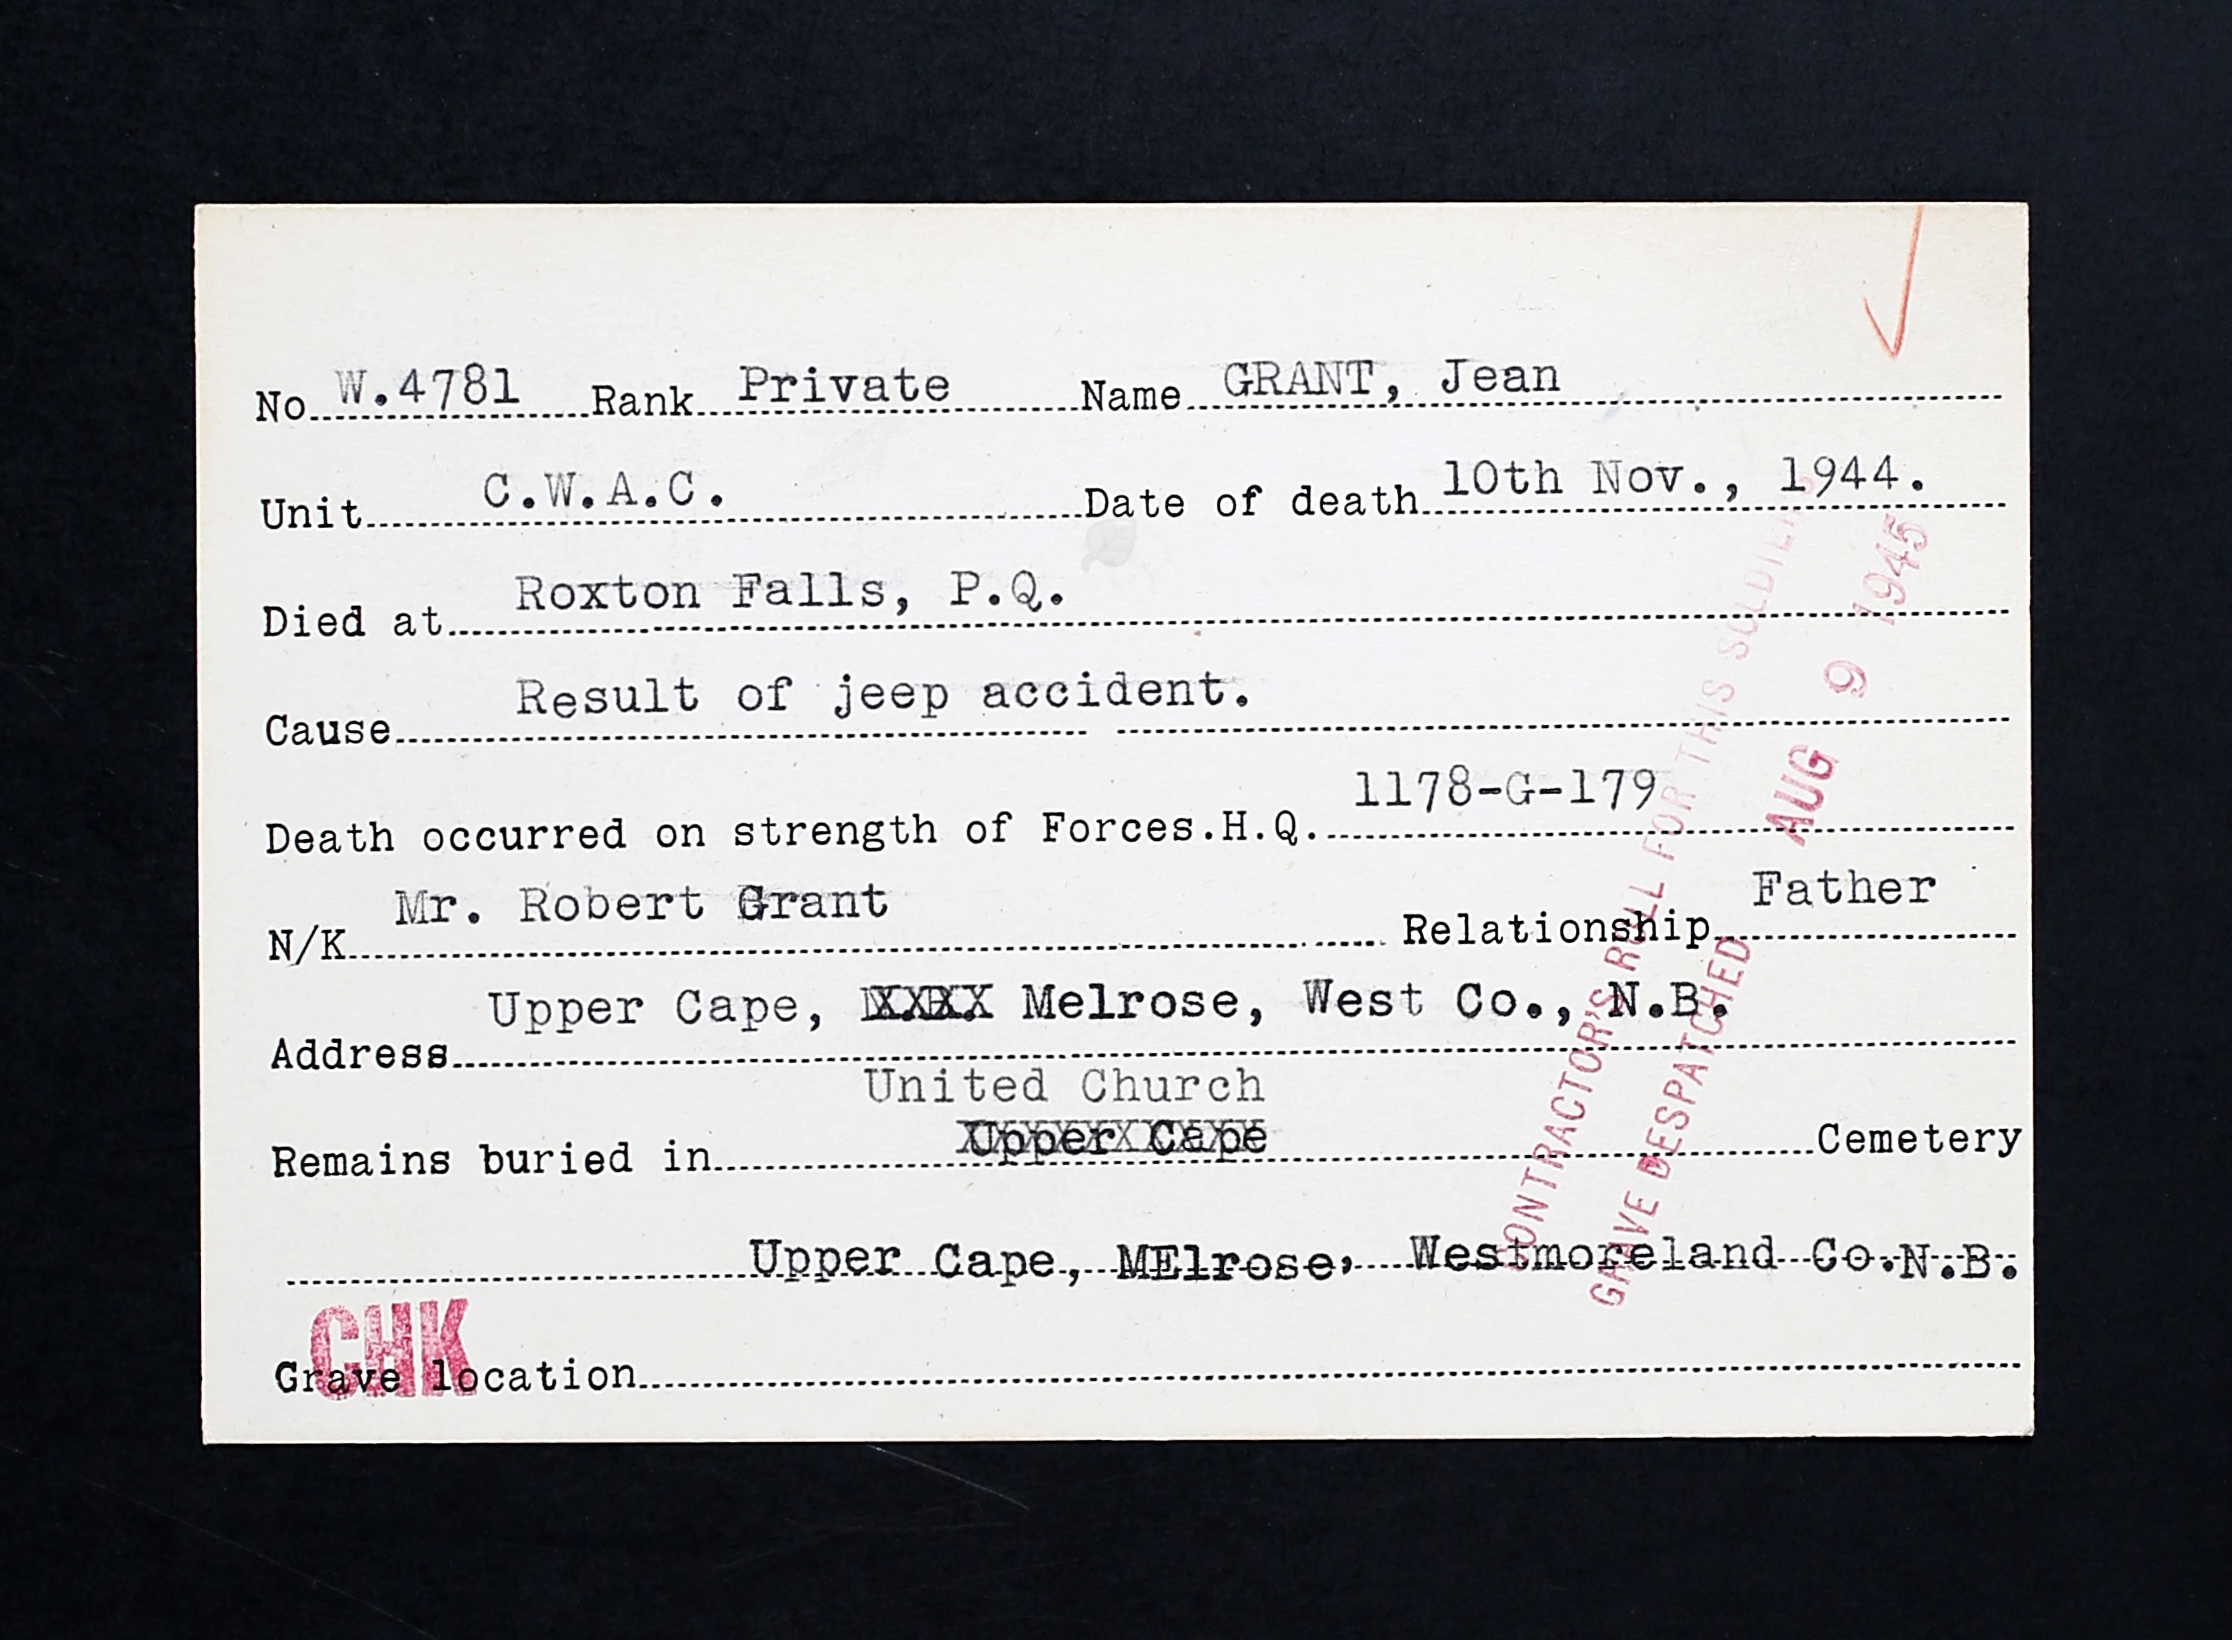 No W.4781 Rank Private Name GRANT, Jean
Unit C.W.A.C. Date of death 10th Nov., 1944.
Died at Roxton Falls, P.Q.
Cause Result of jeep accident.
Death occurred on strength of Forces.H.Q. 1178-G-179
N/K Mr. Robert Grant Relationship Father
Address Upper Cape, Melrose, West Co., N.B.
United Church
Remains buried in Upper Cape Cemetery
Upper Cape, MElrose, Westmoreland Co.N.B.
Grave location
CHK
CONTRACTOR'S ROLL FOR THIS SOLDIER'S
GRAVE DESPATCHED AUG 9 1945